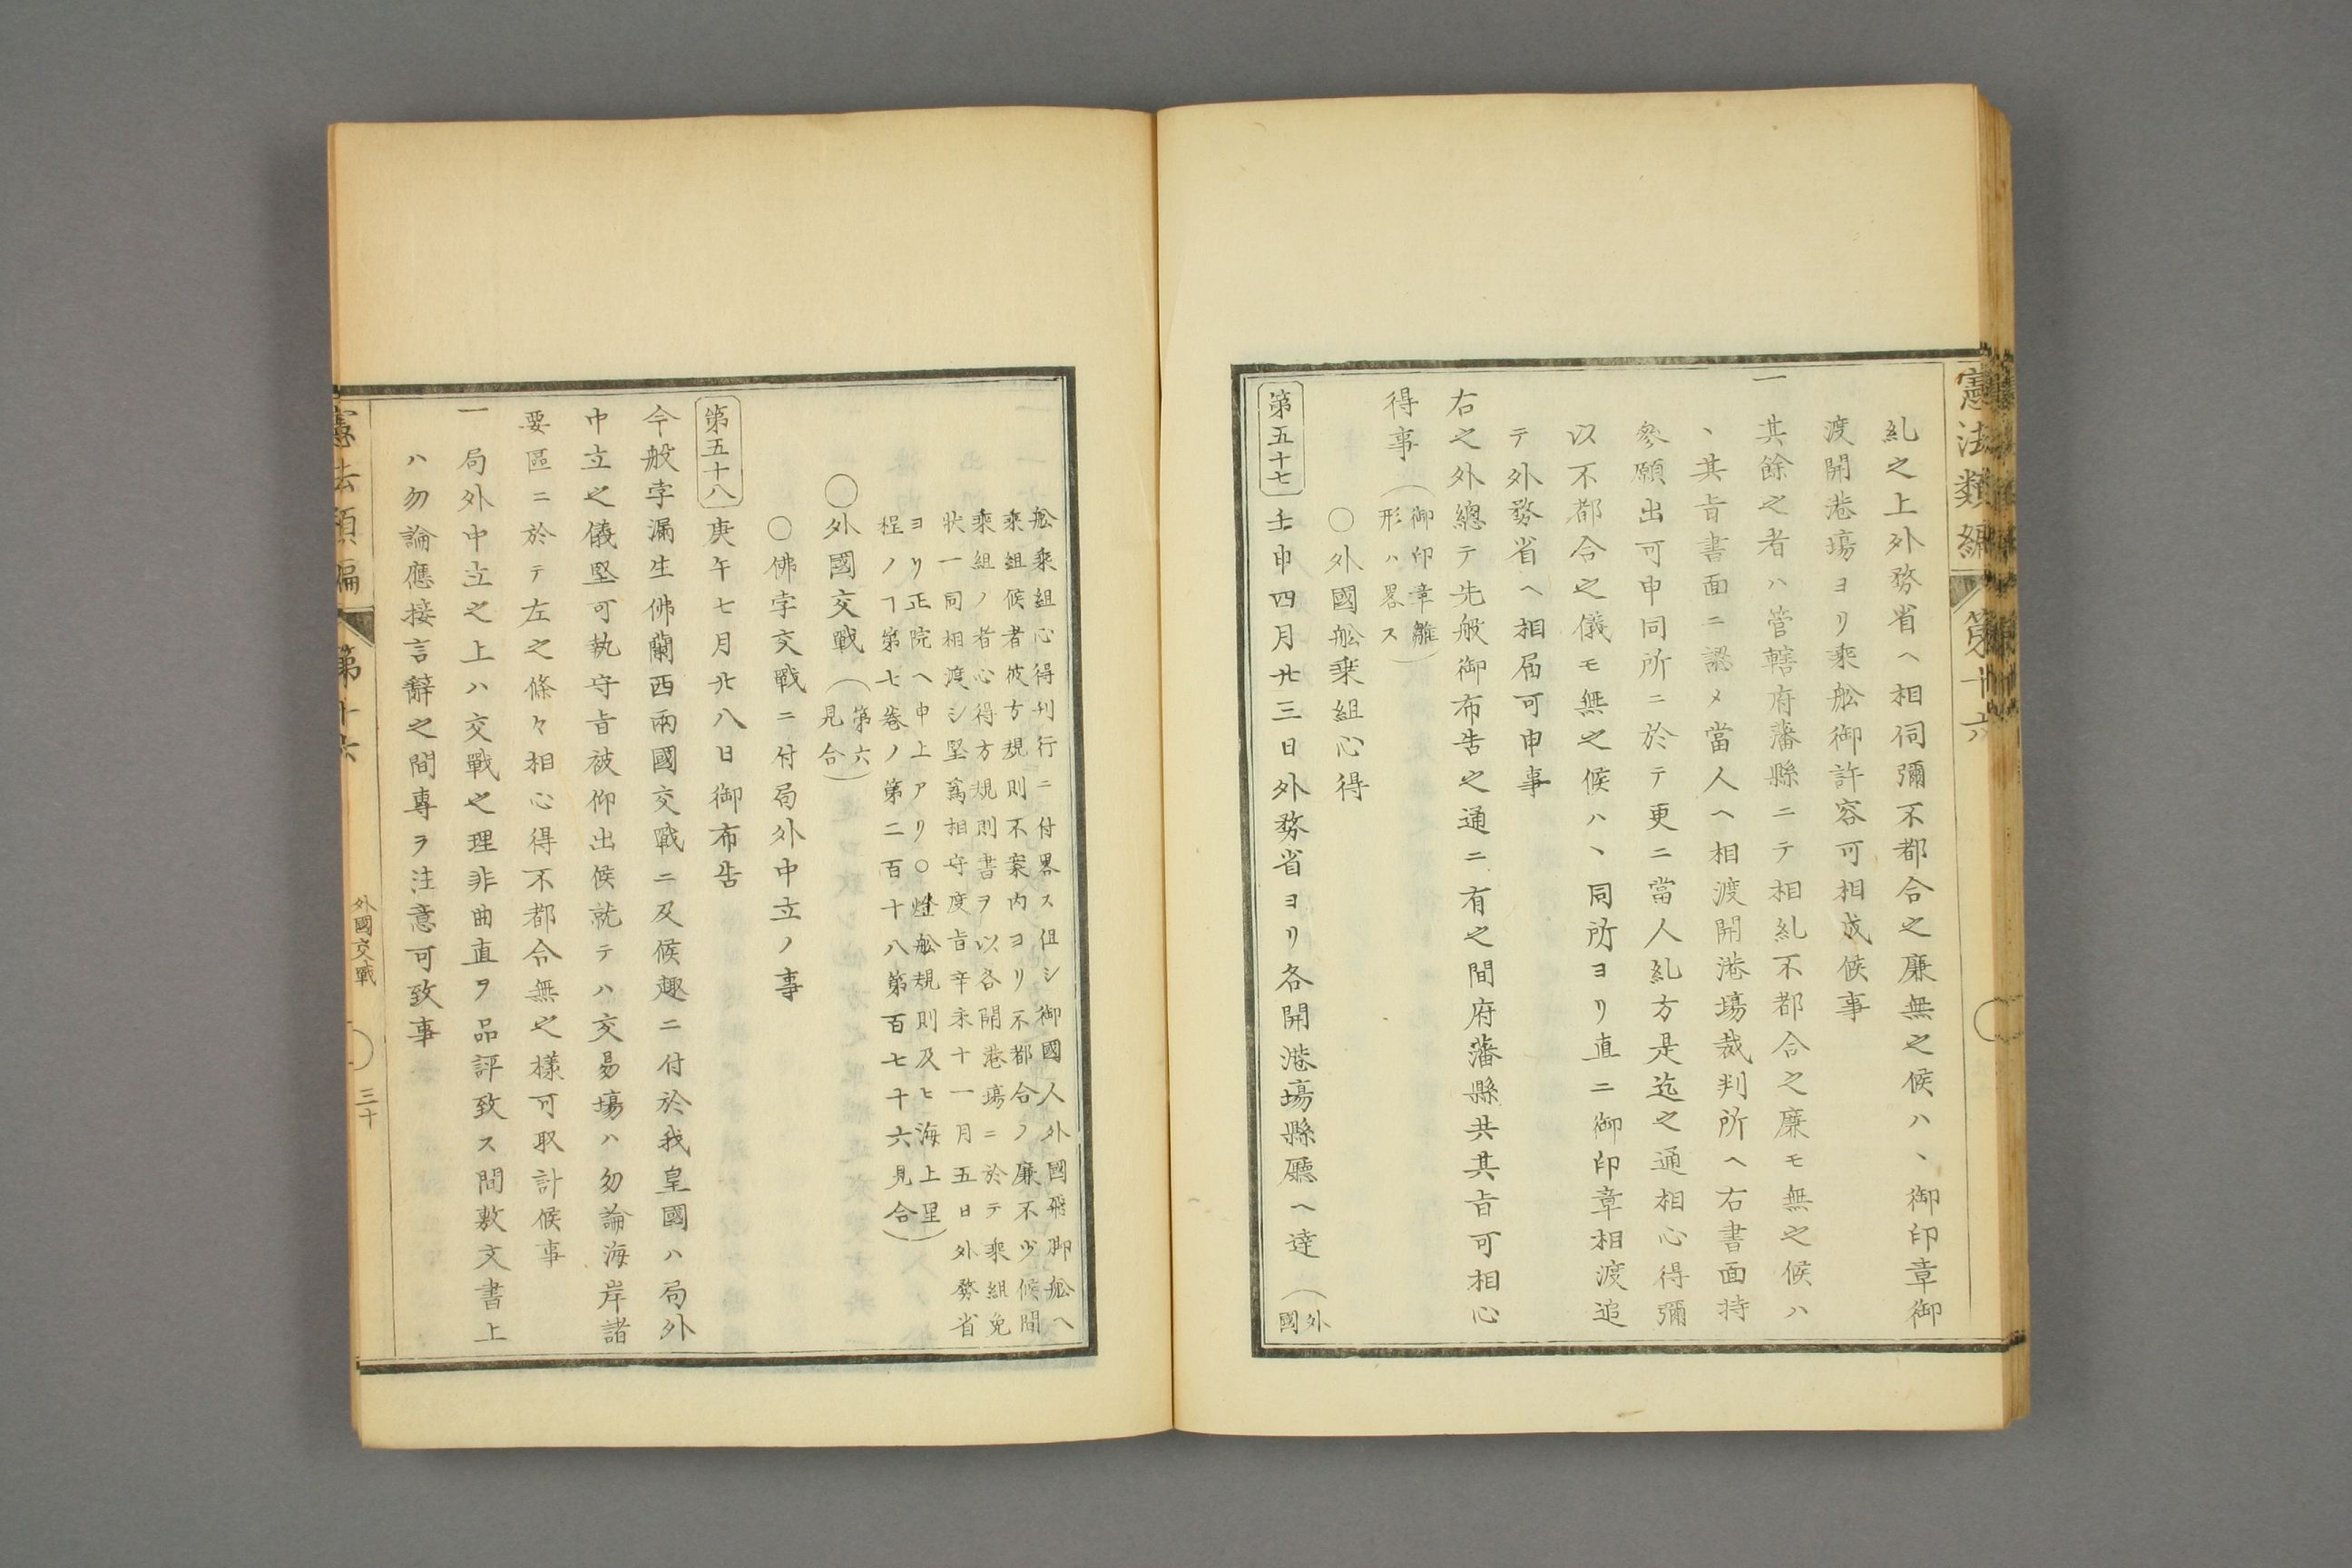 憲法類編
第十六
糺之上外務省ヘ相伺彌不都合之廉無之候ハヽ御印章御
渡開港塲ヨリ乘舩御許容可相成候事
一其餘之者ハ管轄府藩縣ニテ相糺不都合之廉モ無之候ハ
ヽ其旨書面ニ認メ當人ヘ相渡開港塲裁判所ヘ右書面持
參願出可申同所ニ於テ更ニ當人糺方是迄之通相心得彌
以不都合之儀モ無之候ハヽ同所ヨリ直ニ御印章相渡追
テ外務省ヘ相届可申事
右之外總テ先般御布告之通ニ有之間府藩縣共其旨可相心
得事（御印章雛
形ハ畧ス）
〇外國舩乘組心得
第五十七壬申四月廿三日外務省ヨリ各開港塲縣廳ヘ達（外
國
舩乘組心得刊行ニ付畧ス但シ御國人外國飛脚舩ヘ
乘組候者彼方規則不案内ヨリ不都合ノ廉不少候間
乘組ノ者心得方規則書ヲ以各開港塲ニ於テ乘組免
狀一同相渡シ堅爲相守度旨辛未十一月五日外務省
ヨリ正院ヘ申上アリ〇燈舩規則及ヒ海上里
程ノヿ第七巻ノ第二百十八第百七十六見合）
〇外國交戰（第六
見合）
〇佛孛交戰ニ付局外中立ノ事
第五十八庚午七月廿八日御布告
今般孛漏生佛蘭西兩國交戰ニ及候趣ニ付於我皇國ハ局外
中立之儀堅可執守旨被仰出候就テハ交易塲ハ勿論海岸諸
要區ニ於テ左之條々相心得不都合無之樣可取計候事
一局外中立之上ハ交戰之理非曲直ヲ品評致ス間敷文書上
ハ勿論應接言辭之間專ラ注意可致事
憲法類編
第十六
外國交戰
三十